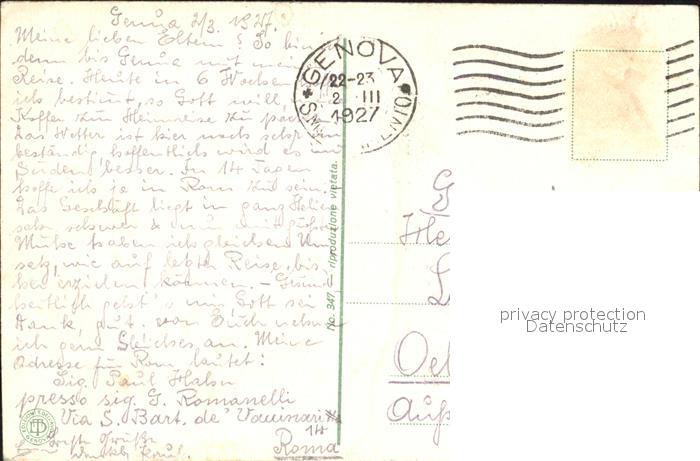 Genua 2/3. 1927.
Meine lieben Eltern! So bin
denn bis Genua mit mein
Reise. Heute in 6 Wochen
ich bestimt, so Gott will,
Koffer zur Heimreise zu packen
Das Wetter ist hier noch sehr un
beständig, hoffentlich wird es im
Süden besser. In 14 Tagen
hoffe ich ja in Rom zu sein.
Das Geschäft liegt in ganz Italien
sehr schwer & nur mit großer
Mühe haben ich gleichen Um
satz, wie auf letzter Reise, bis
her erzielen können. - Gesund
heitlich geht's mir, Gott sei
Dank, gut. von Euch nehme
ich gern Gleiches an. Meine
Adresse für Rom lautet:
Sig. Paul Hahn
presso sig. G. Romanelli
Via S. Bart. de' Vaccinari
14
Roma
Beste Grüße
Paul.
GENOVA
22-23
2 III
1927
No. 347 — riproduzione vietata.
privacy protection
Datenschutz